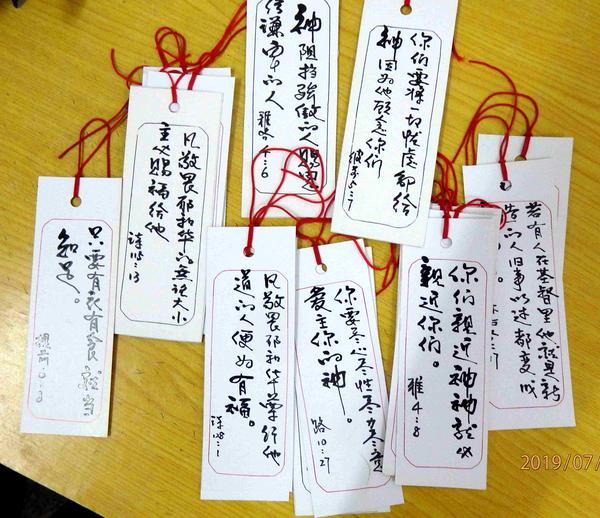 神阻挡骄傲的人赐恩
给谦卑的人 雅各4:6
你们要将一切忧虑卸给
神因为他顾念你们
彼前5:7
凡敬畏耶和华的无论大小
主必赐福给他
诗115:13
若有人在基督里他就是新
造的人旧事以过都变成
只要有衣有食就当
知足。
提前6:8
凡敬畏耶和华遵行他
道的人便为有福。
诗128:1
你要尽心尽性尽力尽意
爱主你的神。
路10:27
你们親近神神就必
親近你们。
雅4:8
2019/07/